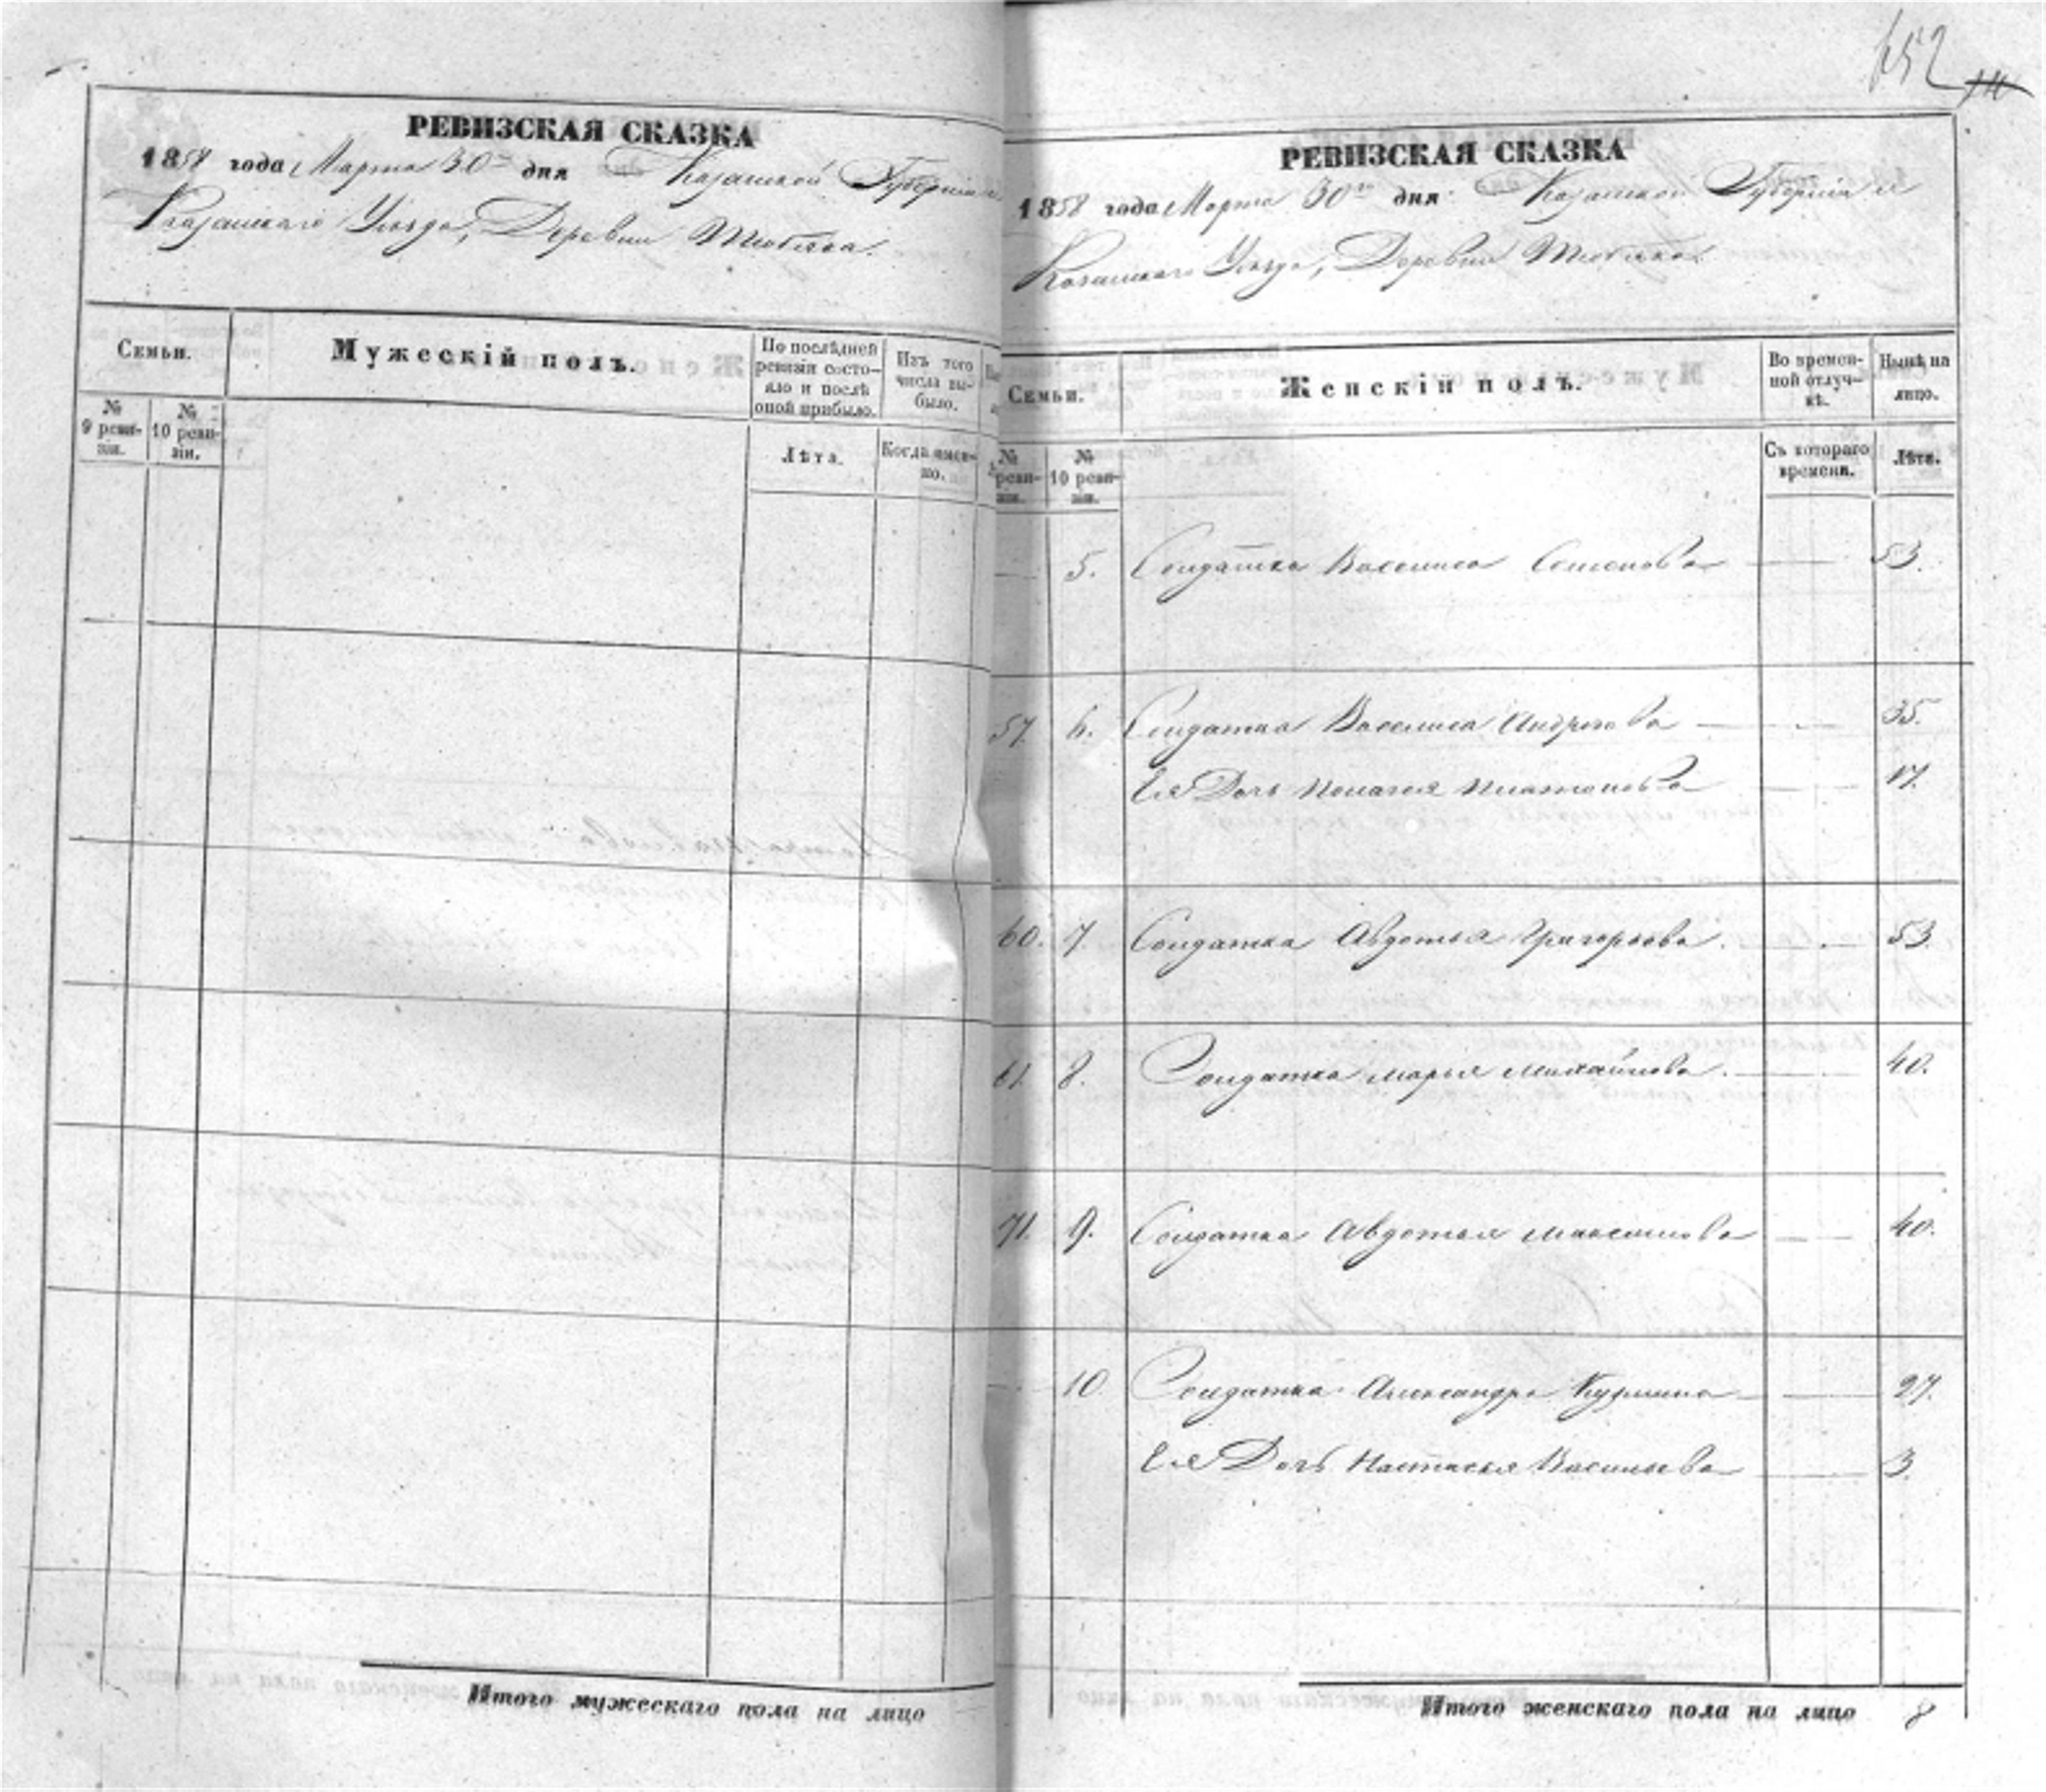 652
РЕВИЗСКАЯ СКАЗКА
1858 года Марта 30го дня Казанской Губерніи
Казанскаго Уѣзда, Деревни Тюбяка.
Семьи.
Мужескій полъ.
По послѣдней ревизіи состояло и послѣ оной прибыло.
Изъ того числа выбыло.
№ 9 ревизіи.
№ 10 ревизіи.
Лѣта.
Когда именно.
Итого мужескаго пола на лицо
РЕВИЗСКАЯ СКАЗКА
1858 года Марта 30го дня Казанской Губерніи
Казанскаго Уѣзда, Деревни Тюбяка.
Семьи.
Женскій полъ.
Во временной отлучкѣ.
Нынѣ на лицо.
№ ревизіи.
№ 10 ревизіи.
Съ котораго времени.
Лѣта.
— 5. Солдатка Василиса Семенова — 53.
57. 6. Солдатка Василиса Андреева — 35.
Ея Дочь Пелагея Платонова — 17.
60. 7. Солдатка Авдотья Григорьева. — 53.
61. 8. Солдатка Марья Михайлова. — 40.
71. 9. Солдатка Авдотья Максимова — 40.
— 10. Солдатка Александра Кузмина — 27.
Ея Дочь Настасья Васильева — 3.
Итого женскаго пола на лицо 8